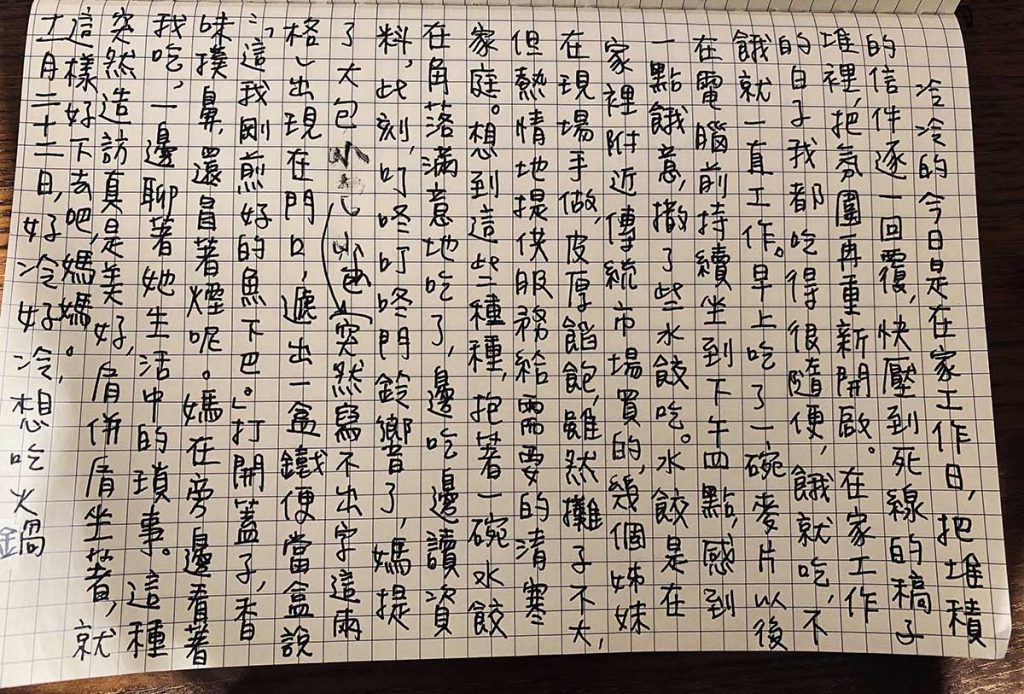 冷冷的今日是在家工作日,把堆積
的信件逐一回覆,快壓到死線的稿子
堆裡,把氛圍再重新開啟。在家工作
的日子我都吃得很隨便,餓就吃,不
餓就一直工作。早上吃了一碗麥片以後
在電腦前持續坐到下午四點,感到
一點餓意,撒了些水餃吃。水餃是在
家裡附近傳統市場買的,幾個姊妹
在現場手做,皮厚餡飽,雖然攤子不大,
但熱情地提供服務給需要的清寒
家庭。想到這些種種,抱著一碗水餃
在角落滿意地吃了,邊吃邊讀資
料,此刻,叮咚叮咚門鈴響了,媽提
了大包小(小包突然寫不出字這兩
格)出現在門口,遞出一盒鐵便當盒說
:「這我剛煎好的魚下巴。」打開蓋子,香
味撲鼻,還冒著煙呢。媽在旁邊看著
我吃,一邊聊著她生活中的瑣事。這種
突然造訪真是美好,肩併肩坐著,就
這樣好下去吧,媽媽。
十一月二十二日,好冷好冷想吃火鍋